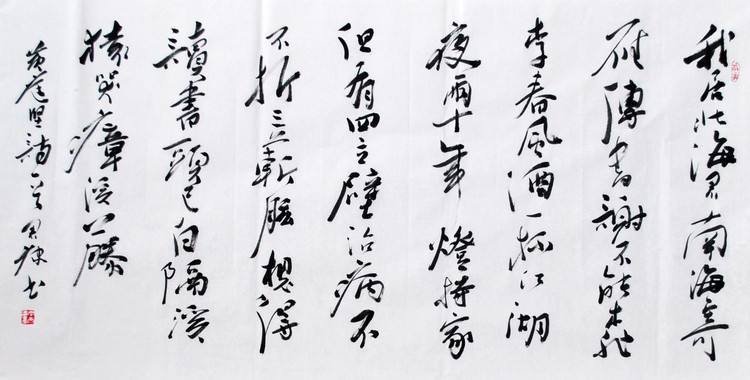 我居北海君南海寄
雁傳書謝不能桃
李春風酒一杯江湖
夜雨十年燈持家
但有四立壁治病不
不折三肱想得
讀書頭已白隔溪
猿哭瘴溪藤
黄庭坚詩一首书